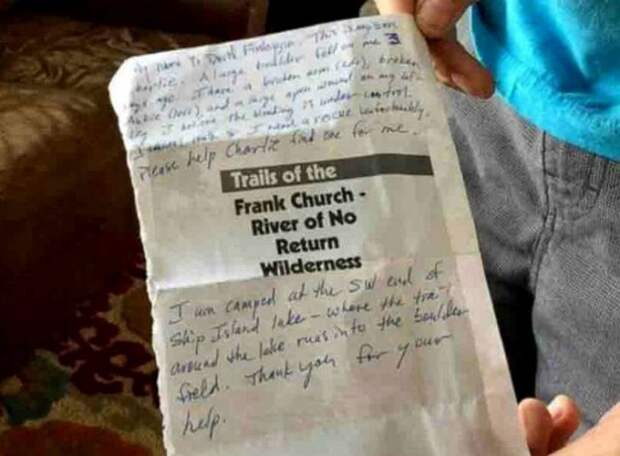 My name is David Finlayson. This is my son
Charlie. A large boulder fell on me 3
days ago. I have a broken arm (L), broken
and a large open wound on my
leg. I believe the bleeding is under control.
I need a rescue
Please help Charlie find one for me.
Trails of the
Frank Church -
River of No
Return
Wilderness
I am camped at the SW end of
Ship Island lake - where the trail
around the lake runs into the boulder
field. Thank you for your
help.